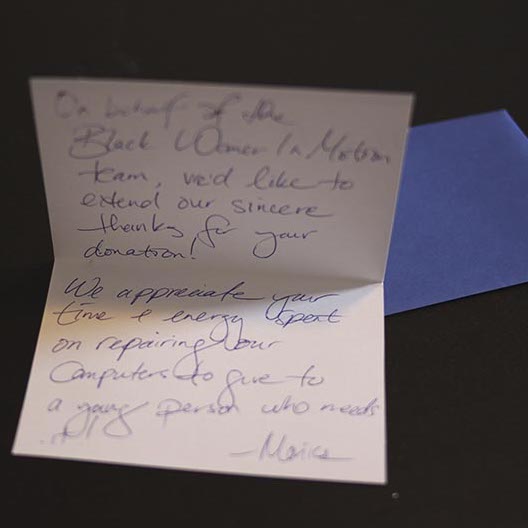 On behalf of the
Black Women In Motion
team, we'd like to
extend our sincere
thanks for your
donation!
We appreciate your
time & energy spent
on repairing your
Computers to give to
a young person who needs
it!